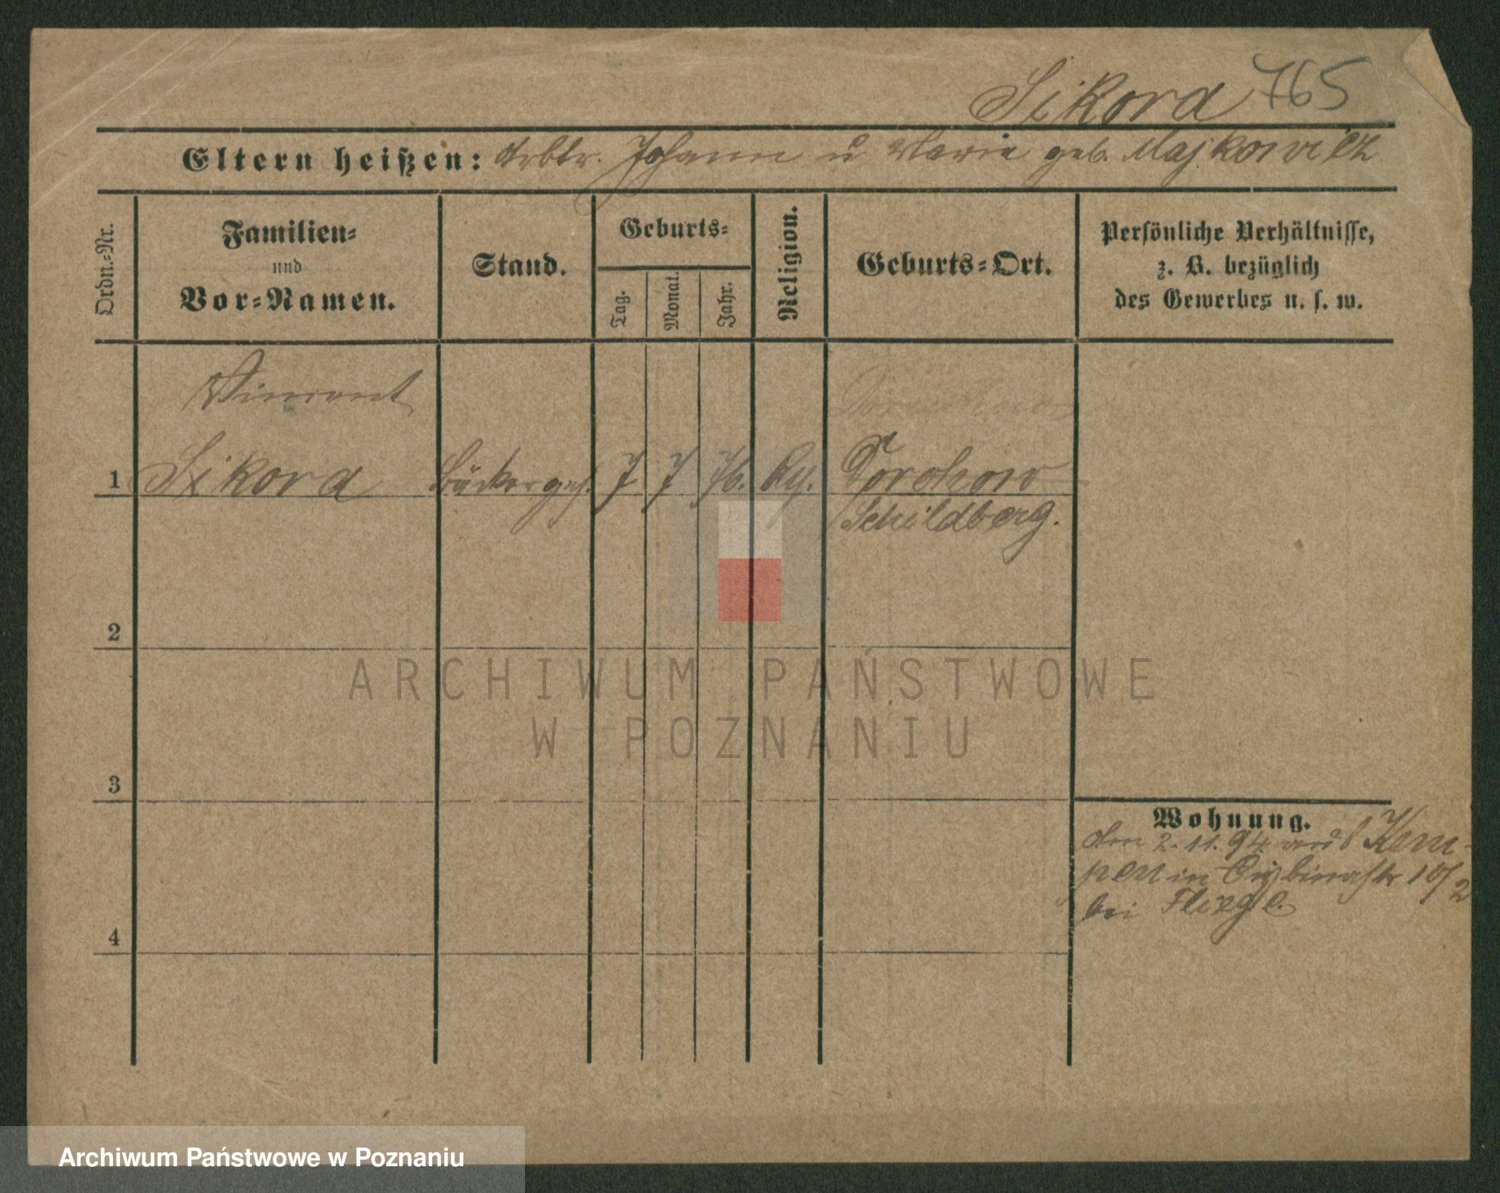 Sikora 765
Eltern heißen: Arbtr. Johann u Marie geb. Majkowicz
Ordn.-Nr.
Familien-
und
Vor-Namen.
Stand.
Geburts-
Tag.
Monat.
Jahr.
Religion.
Geburts-Ort.
Persönliche Verhältnisse,
z. B. bezüglich
des Gewerbes u. s. w.
Vincent
1 Sikora Bäckerges. 7 7 76. Schildberg.
2
3
4
Wohnung.
den 2. 11. 94. aus Kem-
pen in 10/2
bei
ARCHIWUM PAŃSTWOWE
W POZNANIU
Archiwum Państwowe w Poznaniu